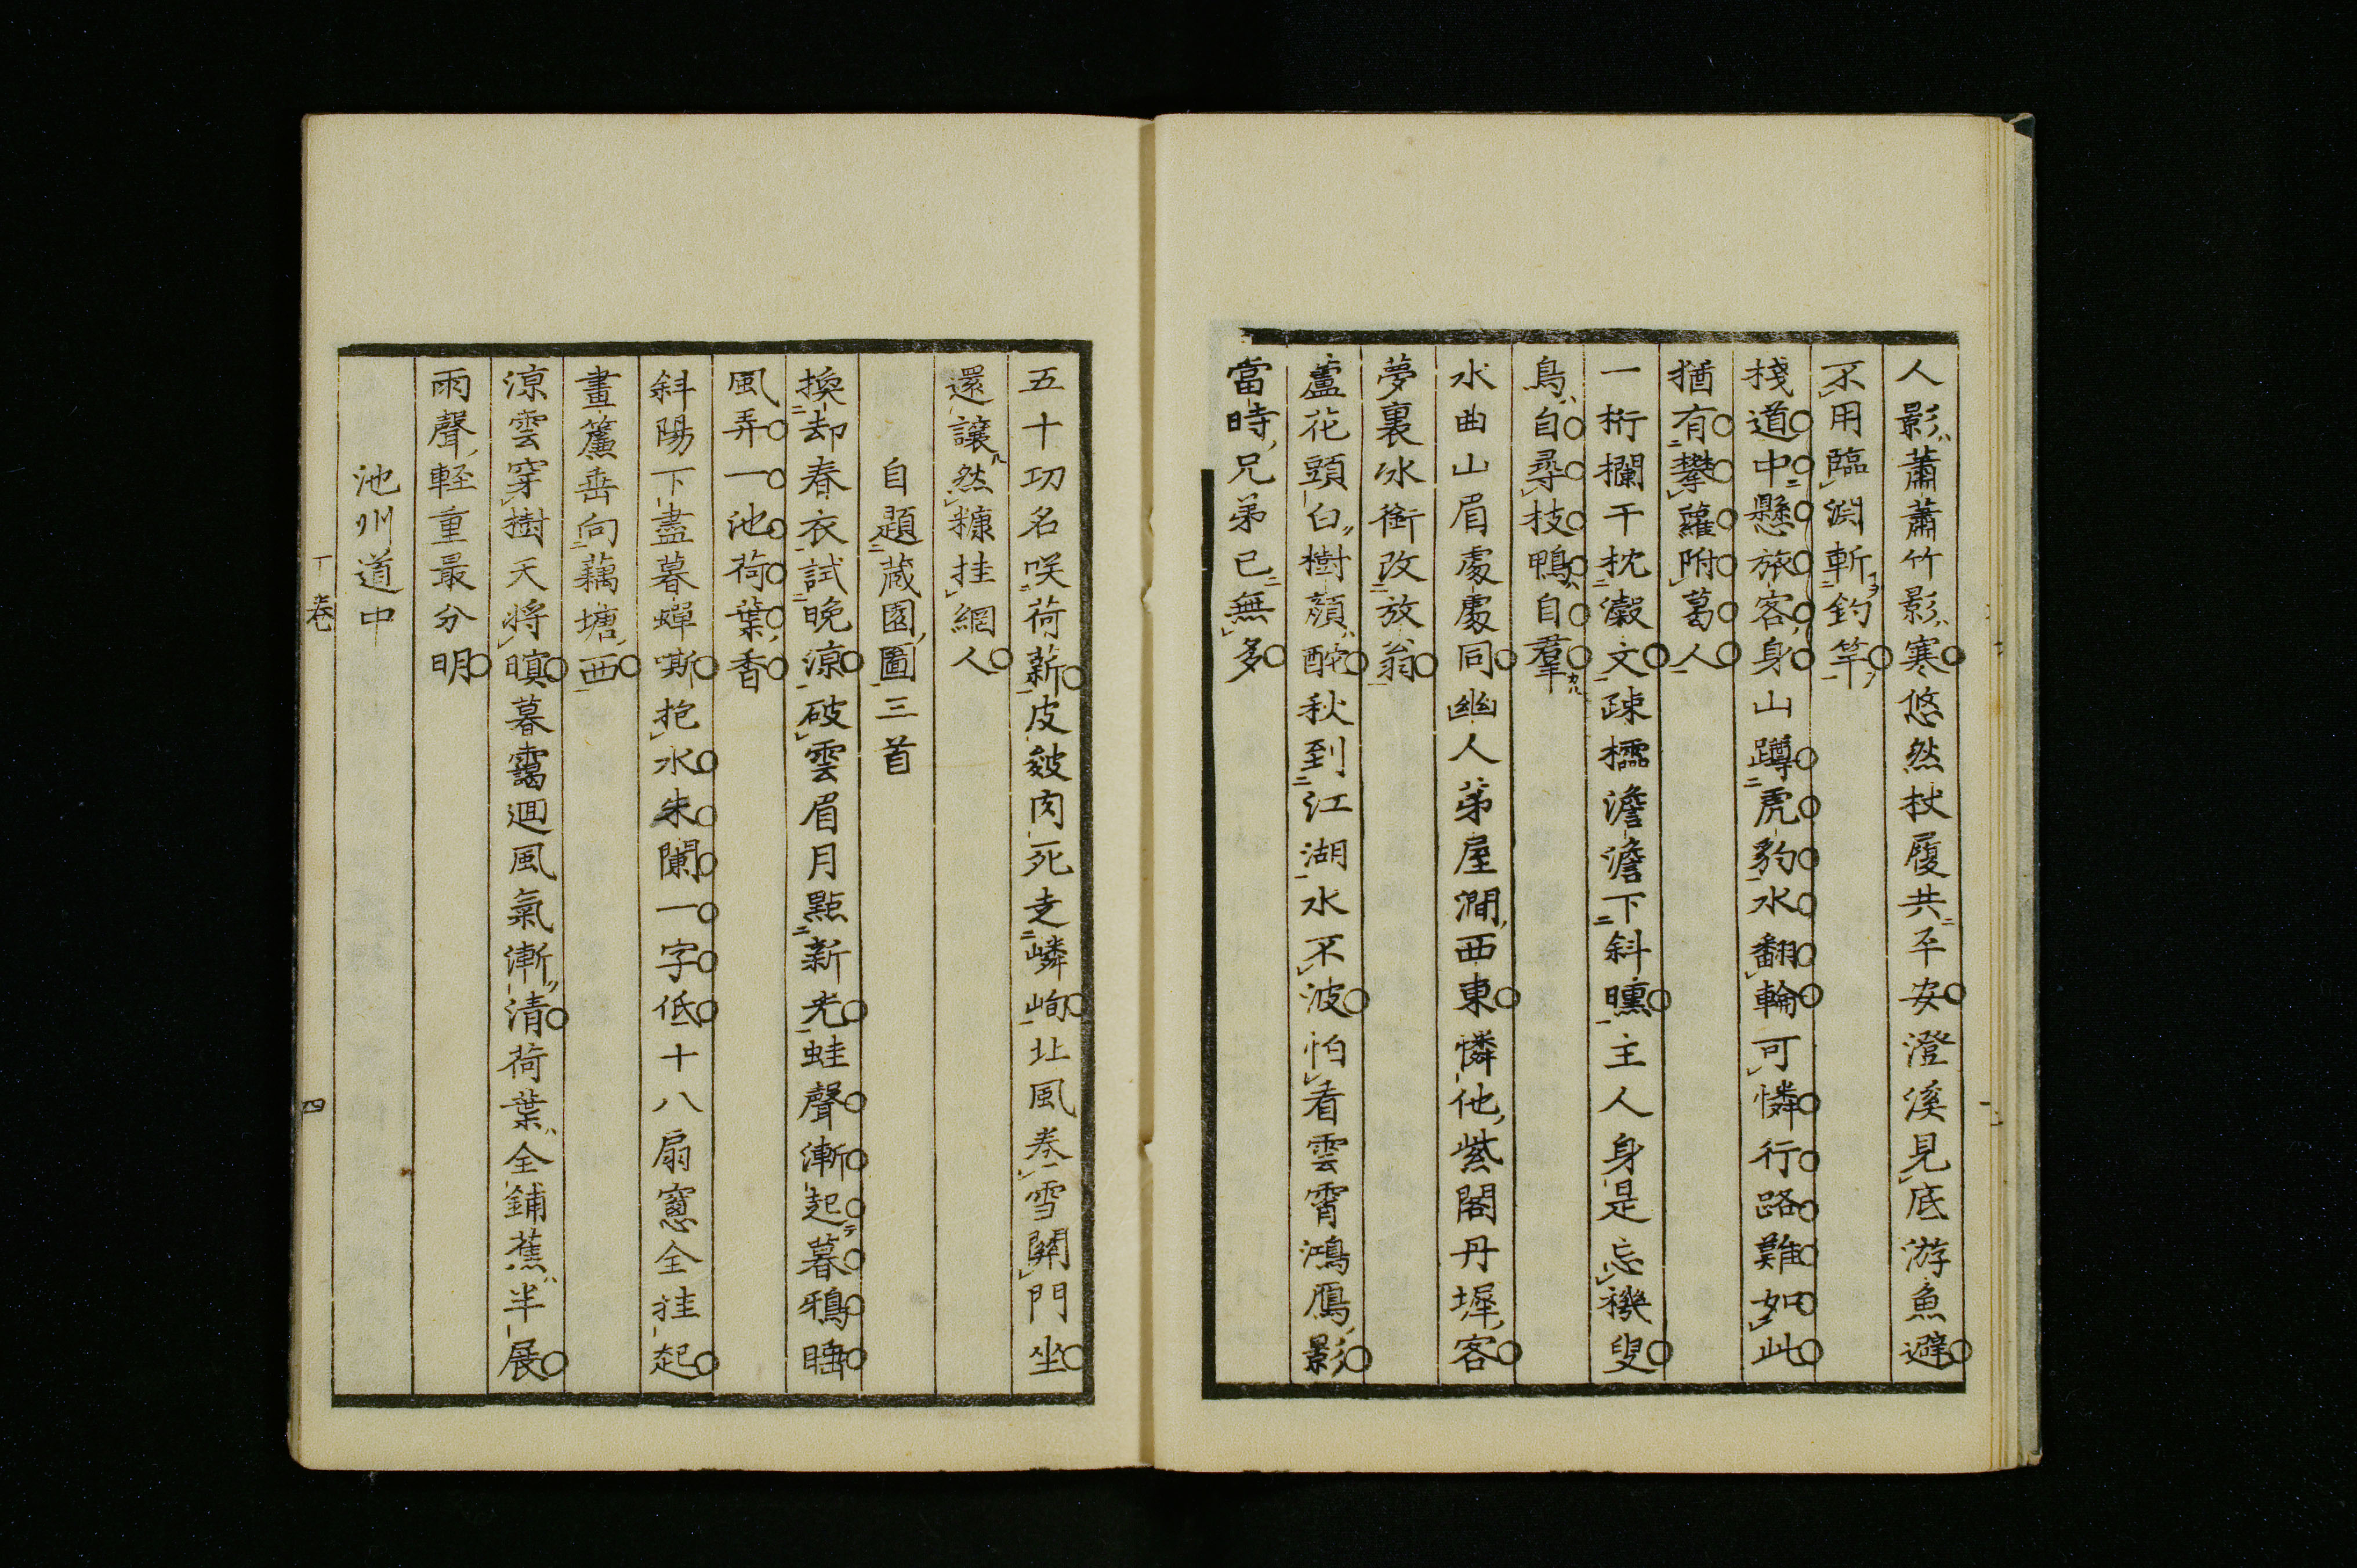 人影蕭蕭竹影寒悠然杖履共平安澄溪見底游魚避
不用臨淵斬釣竿
棧道中懸旅客身山蹲虎豹水翻輪可憐行路難如此
猶有攀蘿附葛人
一桁欄干枕瀫文疎櫺澹澹下斜曛主人身是忘機叟
鳥自尋枝鴨自羣
水曲山眉處處同幽人茅屋澗西東憐他紫閣丹墀客
夢裏氷銜改放翁
蘆花頭白樹顔酡秋到江湖水不波怕看雲霄鴻鴈影
當時兄弟已無多
五十功名咲荷薪皮皴肉死走嶙峋北風卷雪關門坐
還讓然糠挂網人
自題蔵園圖三首
換却春衣試晩凉破雲眉月點新光蛙聲漸起暮鴉睡
風弄一池荷葉香
斜陽下盡暮蟬嘶抱水朱闌一字低十八扇窻全挂起
畫簾垂向藕塘西
凉雲穿樹天將暝暮靄廻風氣漸清荷葉全鋪蕉半展
雨聲輕重最分明
池州道中
丁卷
四